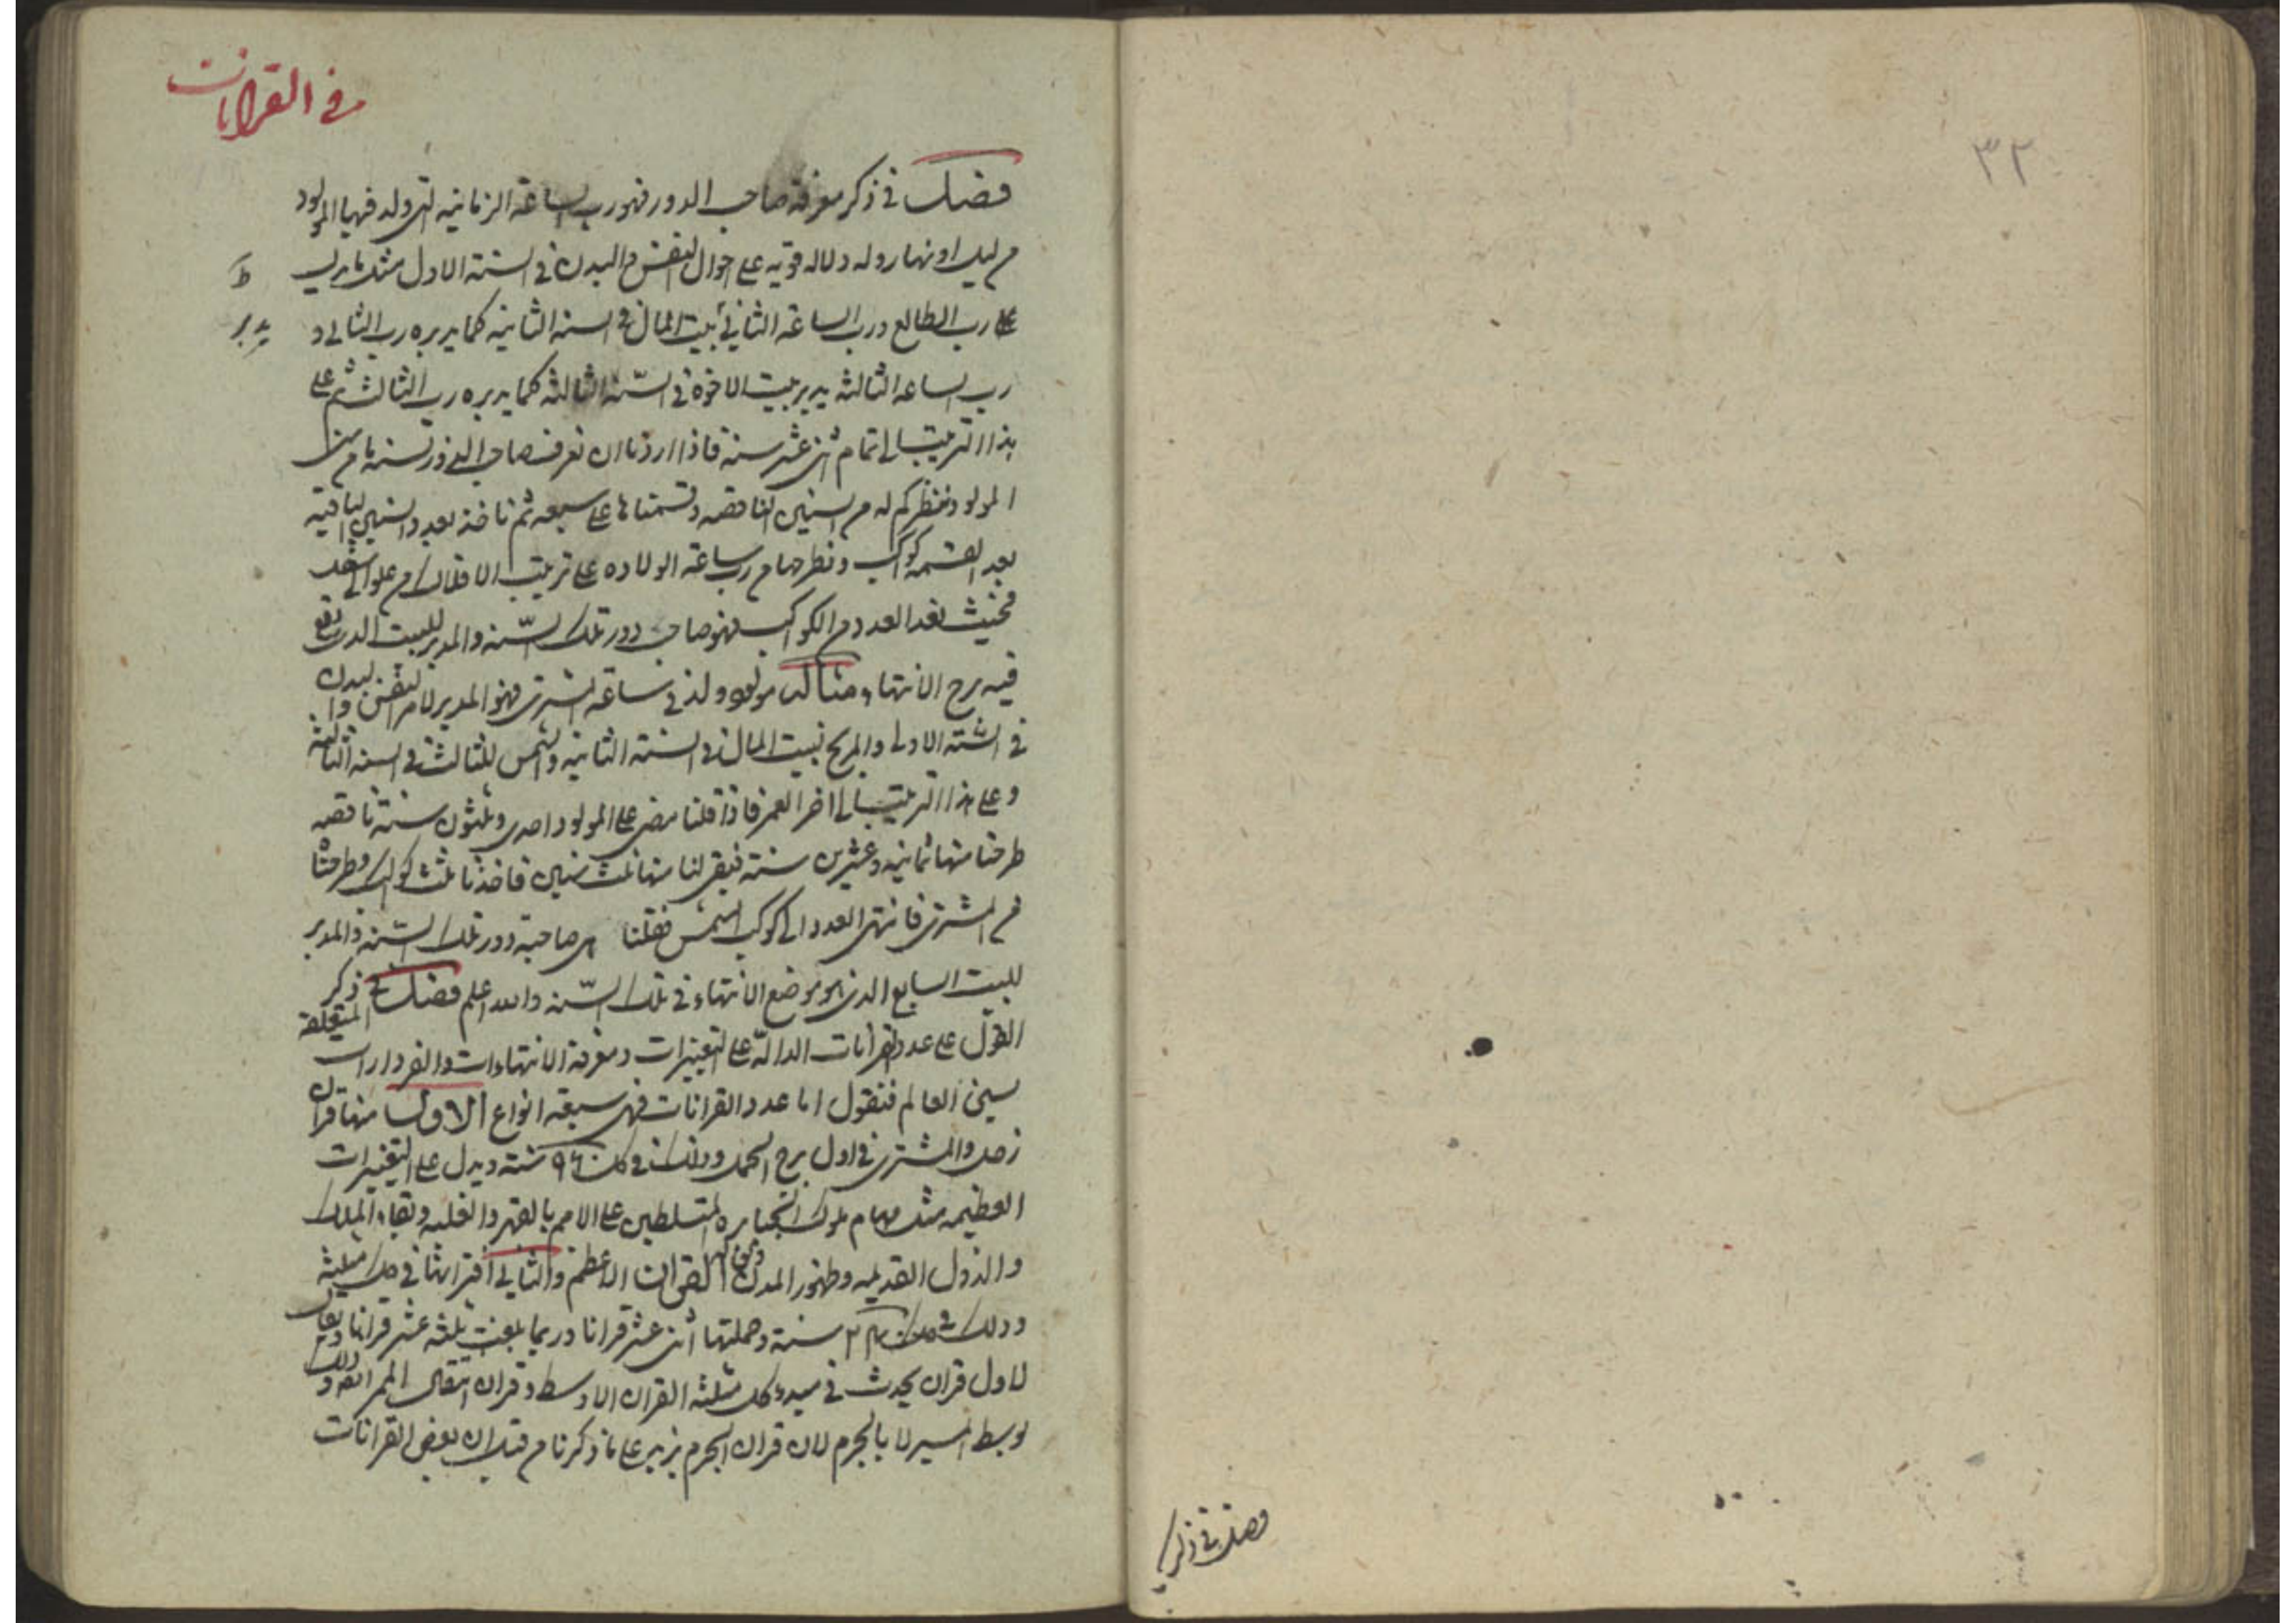 ٣٢
فصل في ذكر
في القرانات
فصل في ذكر معرفة صاحب الدور فهو رب الساعة الزمانيه التي ولد فيها المولود
من ليل او نهار وله دلاله قويه على احوال النفس والبدن في السنة الاول مثل ما يدل
على رب الطالع ورب الساعة الثاني بيت المال في السنه الثانيه كما يدبره رب الثاني و
يدبر
رب الساعه الثالثه يدبر بيت الاخوة في السّنه الثالثه كما يدبره رب الثالث ثم على
هذا الترتيب الى تمام اثنى عشر سنة فاذا اردنا ان نعرف صاحب الدور لسنة ما من سنى
المولود ننظر كم له من السنين الناقصه وقسمناها على سبعه ثم ناخذ بعدد السنين الباقيه
بعد القسمه كواكب ونطرحها من رب ساعة الولاده على ترتيب الافلاك من علو الى سفل
فحيث نفد العدد من الكواكب فهو صاحب دور تلك السّنه والمدبر للبيت الذى يقع
فيه برج الانتهاء مثاله مولود ولد في ساعة المشترى فهو المدبر لامر النفس والبدن
في السنة الاولى والمريخ لبيت المال في السنة الثانيه والشمس للثالث في السنه الثالثة
وعلى هذا الترتيب الى اخر العمر فاذا قلنا مضى على المولود احدى وثلثون سنة ناقصه
طرحنا منها ثمانيه وعشرين سنة فبقى لنا منها ثلث سنين فاخذنا ثلث كواكب وطرحناها
من المشترى فانتهى العدد الى كوكب الشمس فقلنا هى صاحبة دور تلك السّنه والمدبر
للبيت السابع الذى هو موضع الانتهاء في تلك السّنه والله اعلم فصل في ذكر
القول على عدد القرانات الدالّة على التغييرات ومعرفة الانتهاءات والفردارات المتعلقة
بسنى العالم فنقول اما عدد القرانات فهى سبعة انواع الاول منها قران
زحل والمشترى في اول برج الحمل وذلك في كل ٩٦٠ سنة ويدل على التغييرات
العظيمه مثل قيام ملوك الجبابره المتسلطين على الامم بالقهر والغلبه وبقاء الملك
والدول القديمه وظهور المدن القران الاعظم والثاني اقترانها في كل مثلثة
وذلك في كل ٢٤٠ سنة وجملتها اثنى عشر قرانا وربما بلغت ثلثه عشر قرانا ويقال
لاول قران يحدث في مبدء كل مثلثه القران الاوسط وقران انتقال الممر ايضا وذلك
بوسط المسير لا بالجرم لان قران الجرم يزيد على ما ذكرنا من قبل ان بعض القرانات